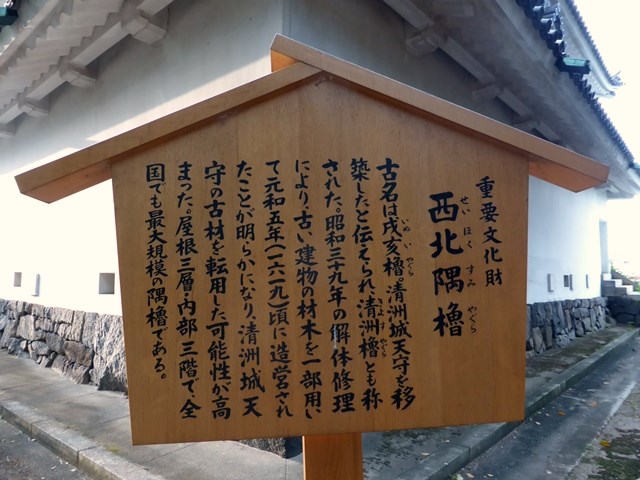 重要文化財
西北隅櫓
せいほくすみやぐら
古名は戌亥櫓。清洲城天守を移
いぬいやぐら
築したと伝えられ、清洲櫓とも称
きよすやぐら
された。昭和三九年の解体修理
により、古い建物の材木を一部用い
て元和五年(一六一九)頃に造営され
たことが明らかになり、清洲城天
守の古材を転用した可能性が高
まった。屋根三層・内部三階で、全
国でも最大規模の隅櫓である。